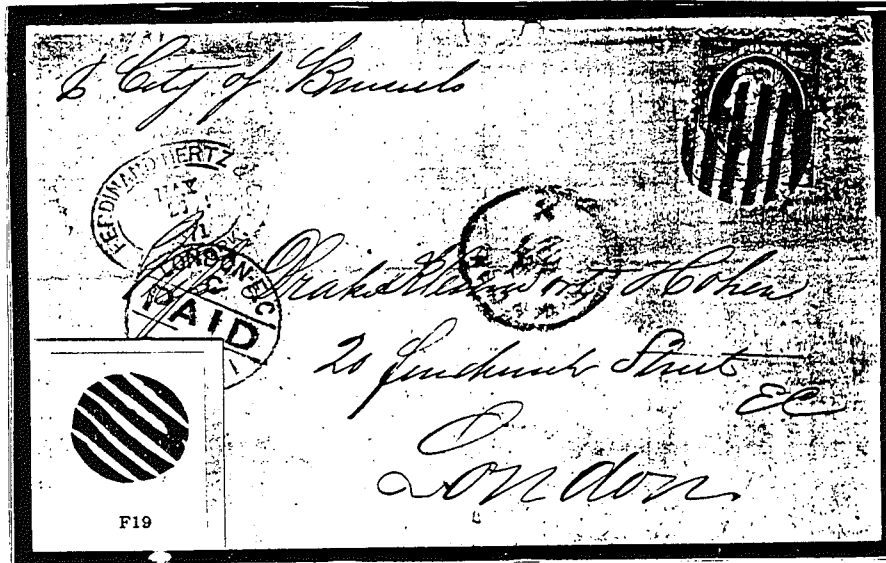 City of Brussels
FERDINAND HERTZ &
MAY
LONDON·E.C
PAID
Drake Kleinwort & Cohen
20 Fenchurch Street
EC
London
F19